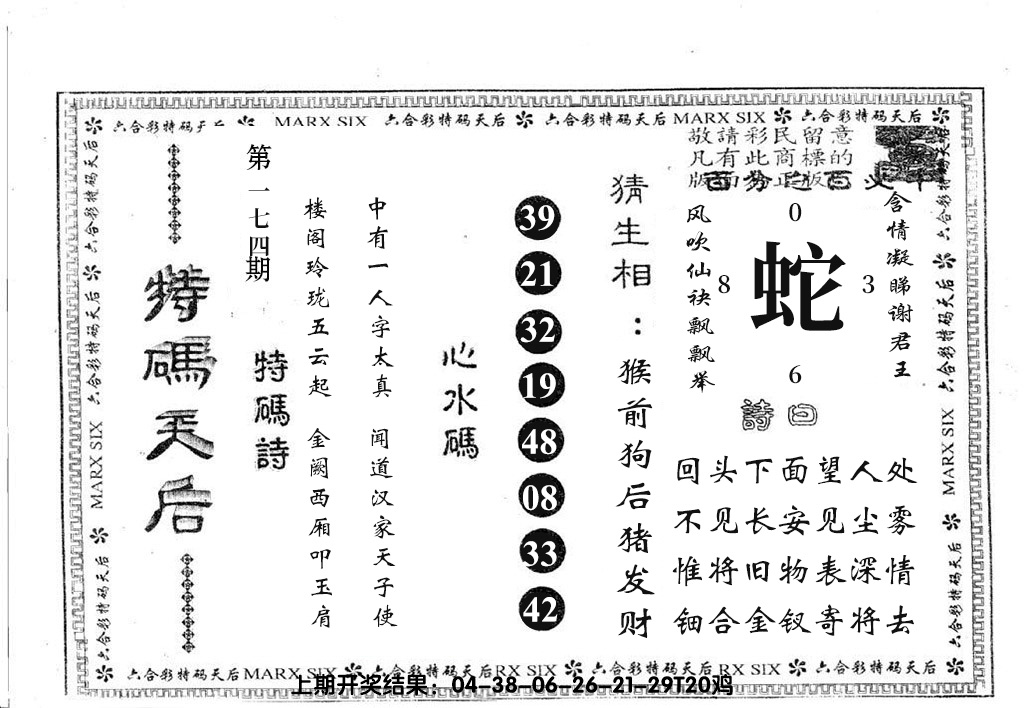 六合彩特码天后 MARX SIX 六合彩特码天后 六合彩特码天后 MARX SIX 六合彩特码天后
敬請彩民留意
凡有此商標的
版面為正版
含情凝睇谢君王
风吹仙袂飘飘举
0
8 蛇 3
6
詩曰
回头下面望人处
不见长安见尘雾
惟将旧物表深情
钿合金钗寄将去
猜生相：猴前狗后猪发财
39
21
32
19
48
08
33
42
心水碼
中有一人字太真 闻道汉家天子使
楼阁玲珑五云起 金阙西厢叩玉肩
特碼詩
第一七四期
特碼天后
六合彩特码天后 六合彩特码天后 MARX SIX 六合彩特码天后
六合彩特码天后 六合彩特码天后 MARX SIX 六合彩特码天后
六合彩特码天后 MARX SIX 六合彩特码天后 RX SIX 六合彩特码天后 RX SIX 六合彩特码天后
上期开奖结果：04-38-06-26-21-29T20鸡